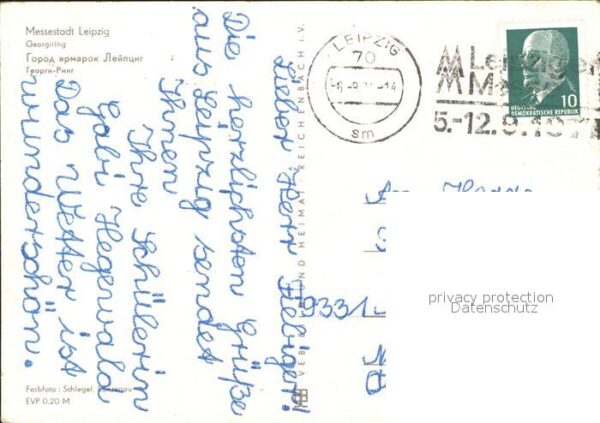 Messestadt Leipzig
Georgiring
Город ярмарок Лейпциг
Георги-Ринг
Lieber Herr Fiebiger!
Die herzlichsten Grüße
aus Leipzig sendet
Ihnen
Ihre Schülerin
Gabi Hegewald
Das Wetter ist
wunderschön.
Farbfoto: Schlegel,
EVP 0,20 M
BILD UND HEIMAT REICHENBACH i. V.
LEIPZIG
70
sm
5.-12.9.1971
DEUTSCHE
DEMOKRATISCHE REPUBLIK
10
9331
privacy protection
Datenschutz